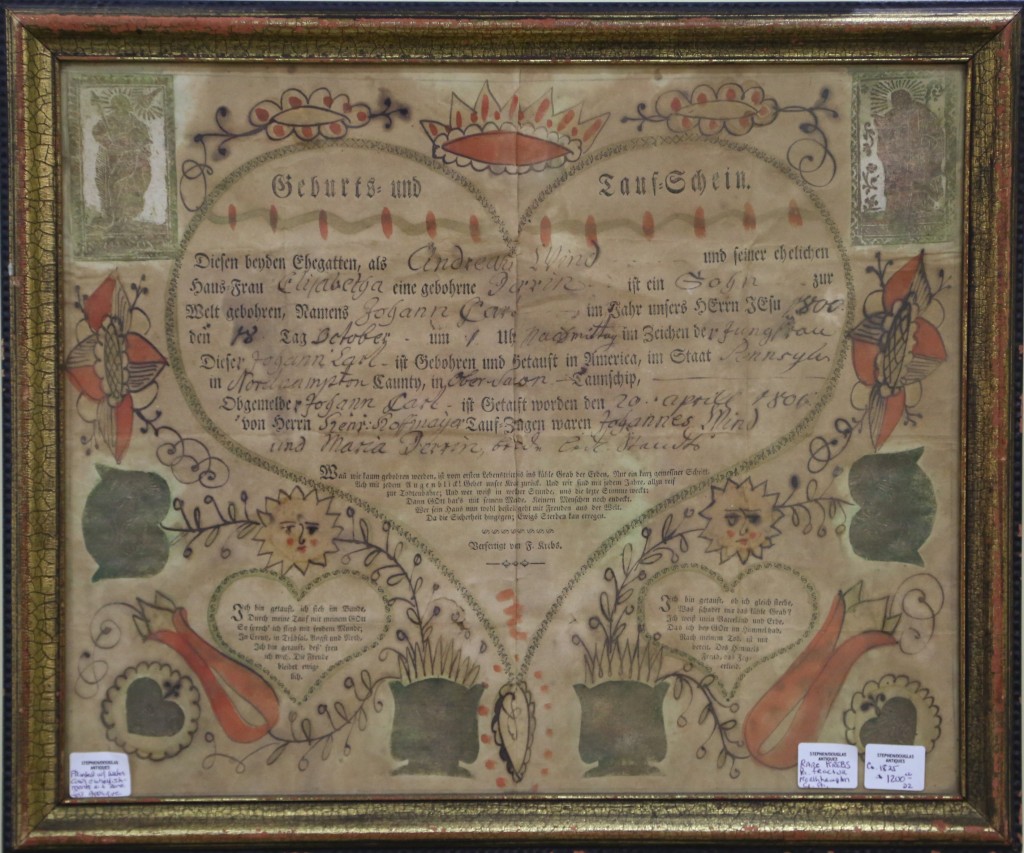 Geburts= und Tauf=Schein.
Diesen beyden Ehegatten, als Andreas Wind und seiner ehelichen
Haus-Frau Elisabetha eine gebohrne Derrin ist ein Sohn zur
Welt gebohren, Namens Johann Carl im Jahr unsers HErrn JEsu 1800
den 18 Tag October um 1 Uhr Nachmittag im Zeichen der Jungfrau
Dieser Johann Carl ist Gebohren und Getauft in America, im Staat Pennsylv
in Northhampton Caunty, in Taunschip,
Obgemelder Johann Carl ist Getauft worden den 20. aprill 1806
von Herrn Tauf-Zeugen waren Johannes Wind
und Maria Derrin,
Was wir kaum gebohren werden, ist vom ersten Lebenstritt bis ins kühle Grab der Erden, Nur ein kurz gemessner Schritt.
Ach mit jedem Augenblick! Gehet unsre Kraft zurück. Und wir sind mit jedem Jahre, allzu reif
zur Todtenbahre; Und wer weiß in welcher Stunde, uns die lezte Stimme wecke;
Dann GOtt hat's mit seinem Munde, Keinem Menschen noch entdeckt.
Wer sein Haus nun wohl bestellt geht mit Freuden aus der Welt.
Da die Sicherheit hingegen; Ewigs Sterben kan erregen.
Verfertigt von F. Krebs.
Ich bin getauft, ich steh im Bunde,
Durch meine Tauf mit meinem GOtt
So sprech' ich stets mit frohem Munde;
In Creutz, in Trübsal, Angst und Noth,
Ich bin getauft, deß' freu
ich mich. Die Freude
bleibet ewig-
lich.
Ich bin getauft, ob ich gleich sterbe,
Was schadet mir das kühle Grab?
Ich weiß mein Vaterland und Erbe,
Das ich bey GOtt im Himmel hab,
Nach meinem Tod, ist mir
bereit, Des Himmels
STEPHEN/DOUGLAS
ANTIQUES
STEPHEN/DOUGLAS
ANTIQUES
KREBS
STEPHEN/DOUGLAS
ANTIQUES
Ca 1825
1200
22